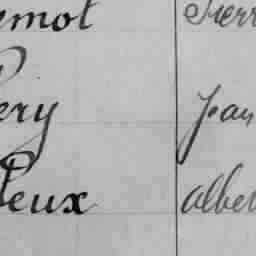 emot Pierr
ery Jean
leux Albe